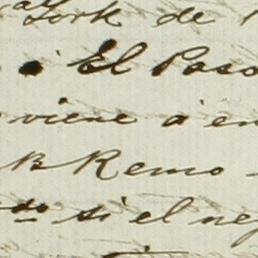 York de
á El Paso
viene a en
B Remo
si el neg